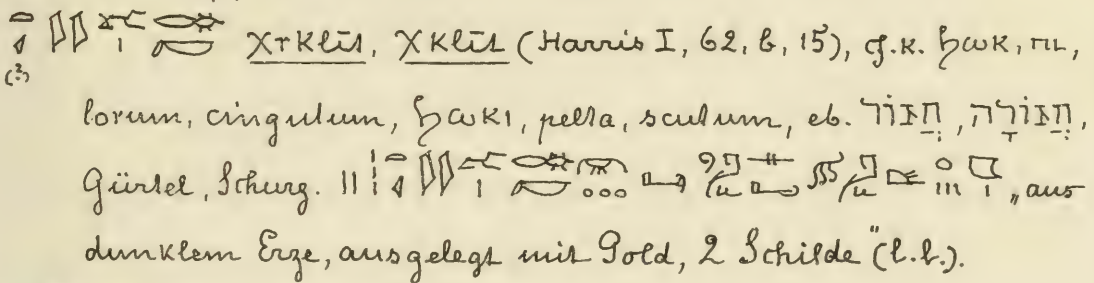 χrklit, χklit (Harris I, 62, b, 15), cf. k. ϧωκ, πι,
lorum, cingulum, ϧωκι, pelta, scutum, eb. חֲגוֹר, חֲגוֹרָה,
Gürtel, Schurz. „aus
dunklem Erze, ausgelegt mit Gold, 2 Schilde“ (l.l.).